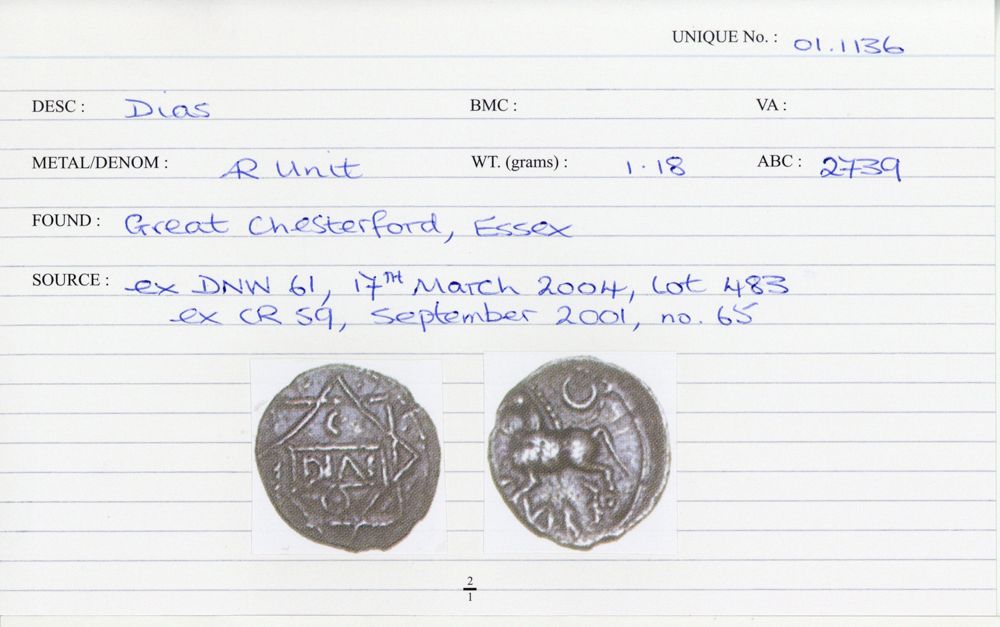 UNIQUE No. : 01.1136
DESC : Dias BMC : VA :
METAL/DENOM : AR Unit WT. (grams) : 1.18 ABC : 2739
FOUND : Great Chesterford, Essex
SOURCE : ex DNW 61, 17TH March 2004, Lot 483
ex CR 59, September 2001, no. 65
C
DIAS
2
1